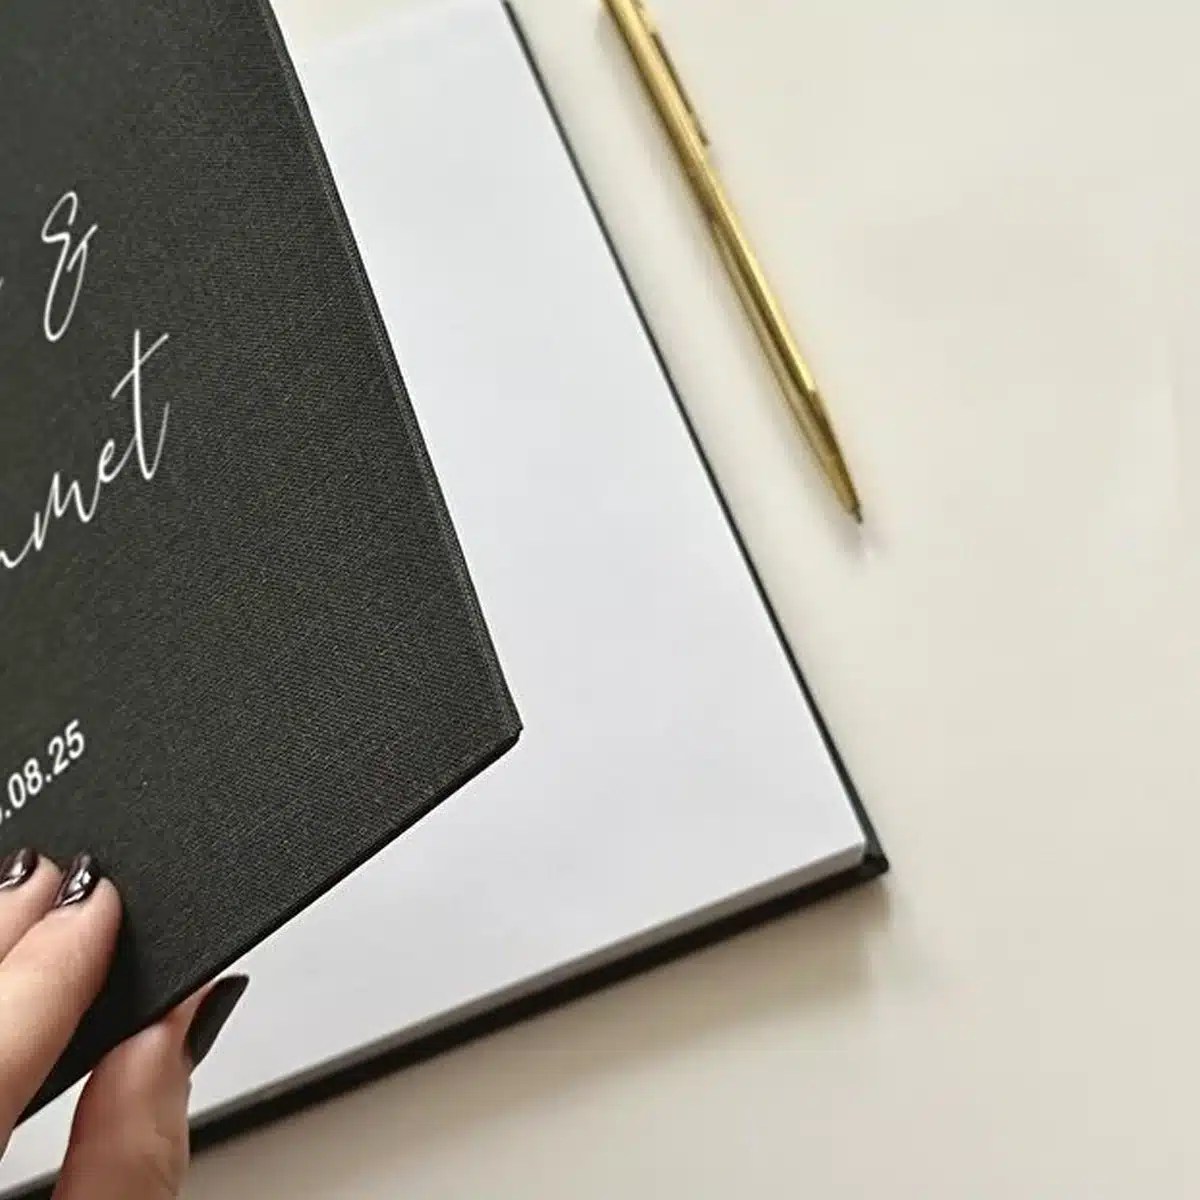 &
mmet
.08.25